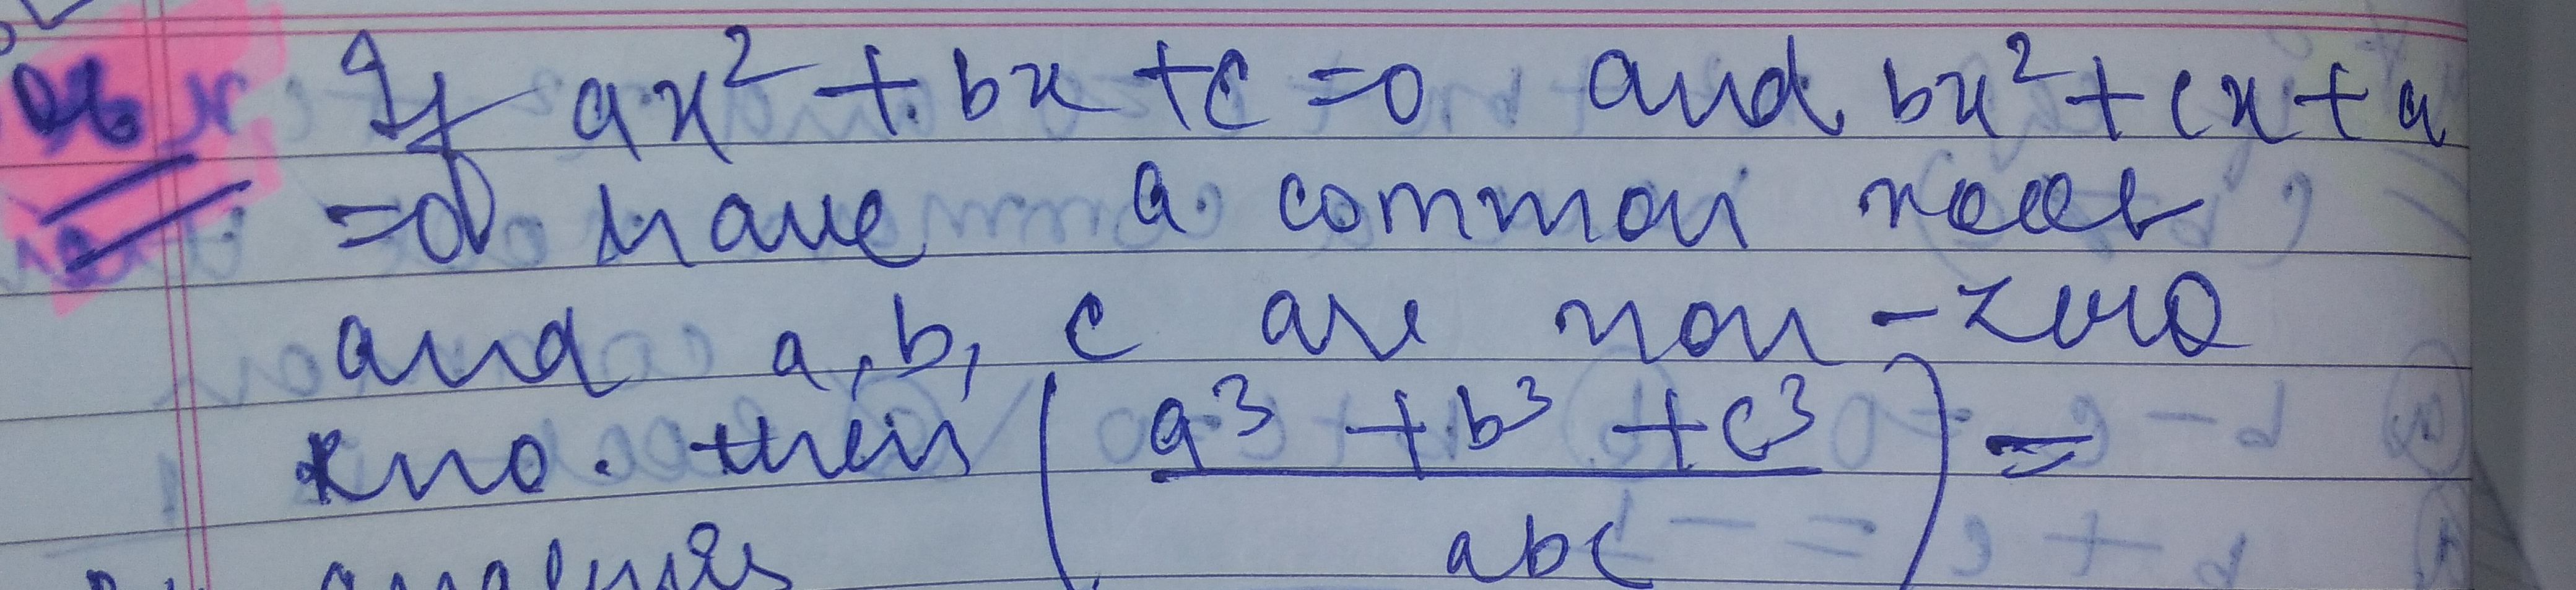 If ax² + bx + c = 0 and bx² + cx + a
= 0 have a common root
and a, b, c are non-zero
no. then (a³ + b³ + c³ / abc) =
analysis